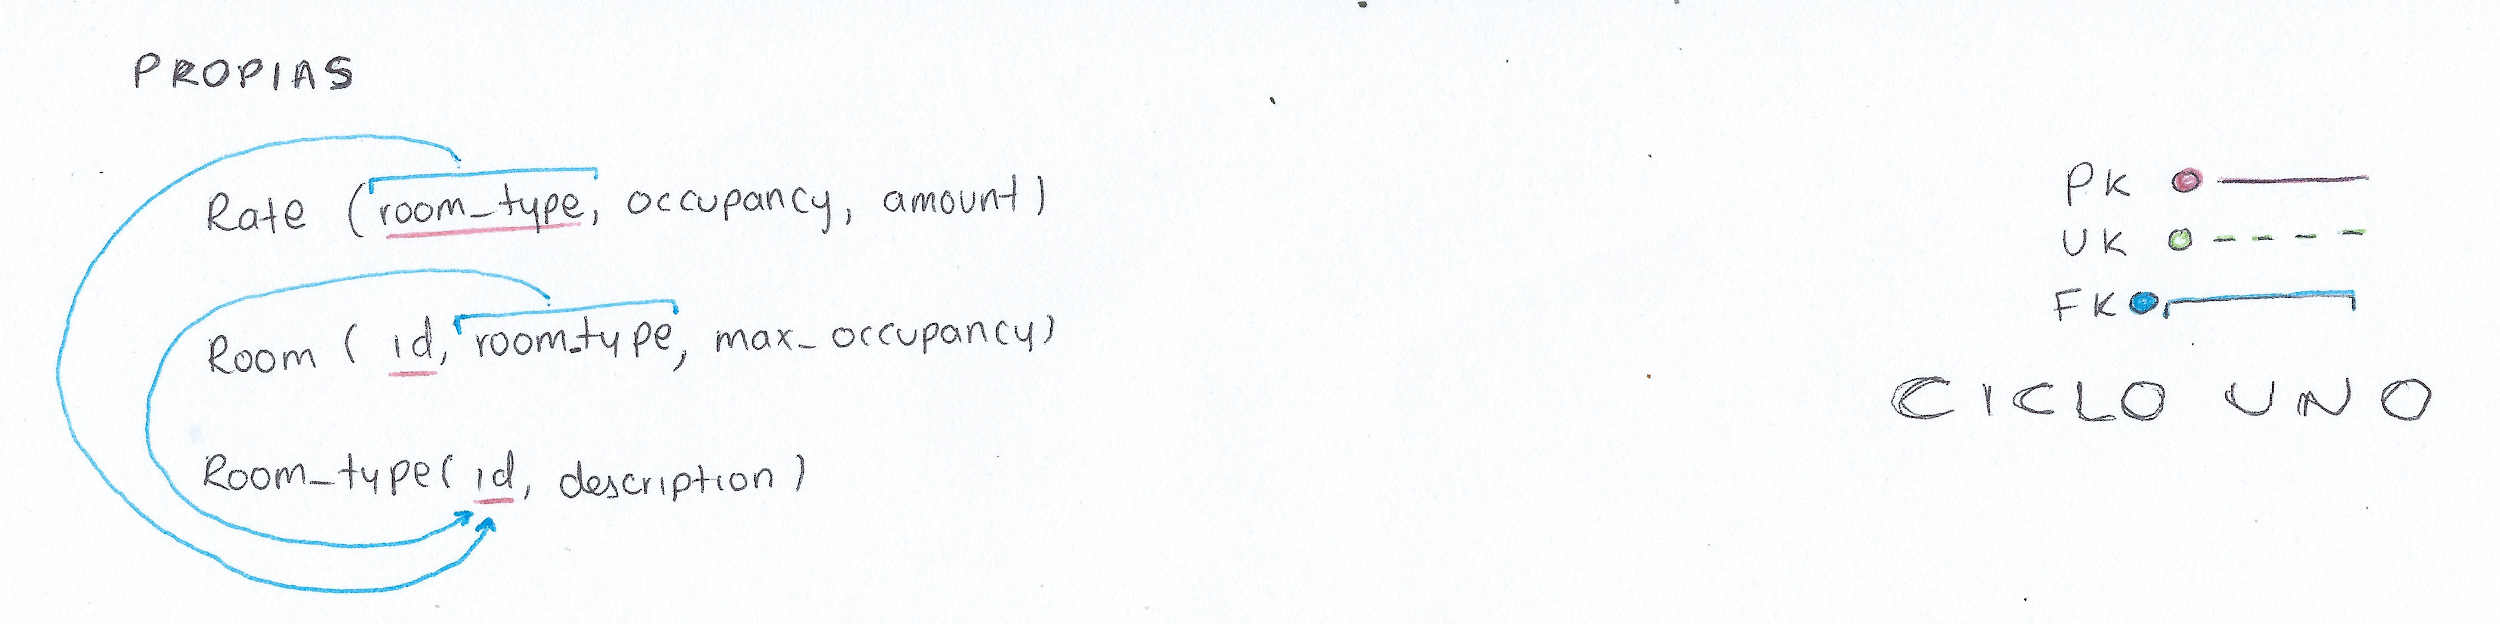 PROPIAS
Rate (room_type, occupancy, amount)
Room ( id, room_type, max_occupancy)
Room_type( id, description )
PK
UK
FK
CICLO UNO